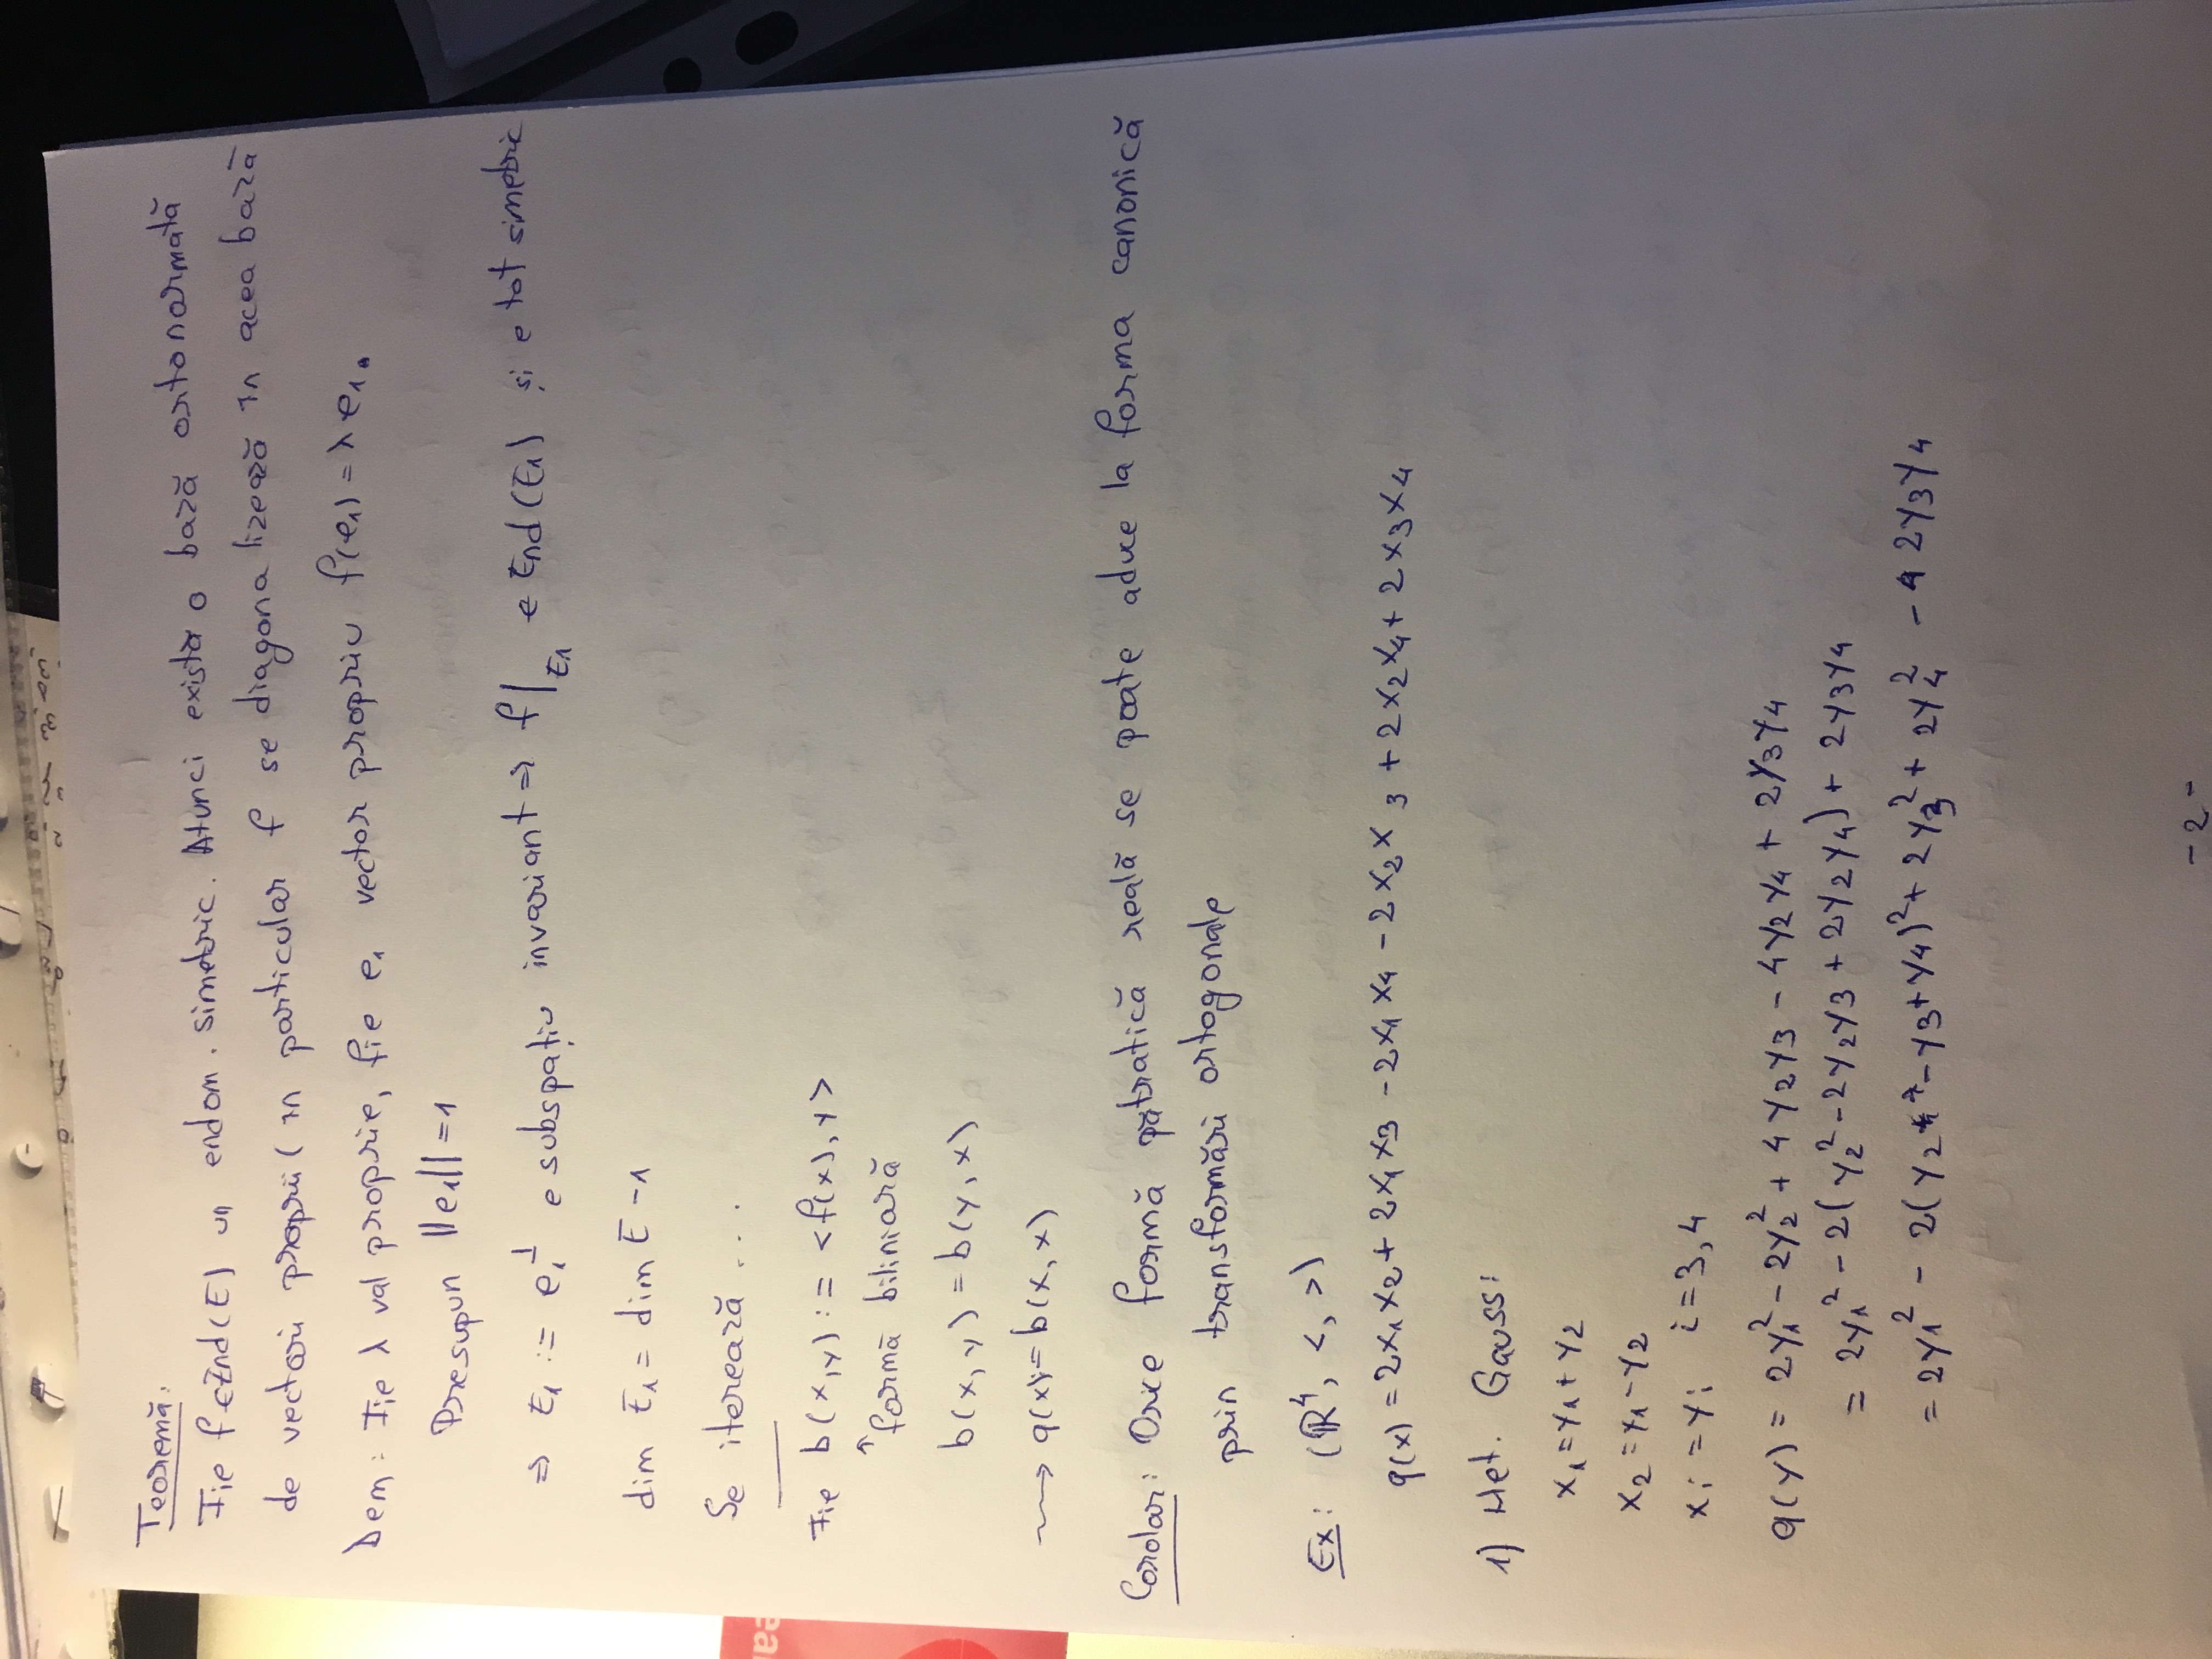 Teoremă:
Fie f∈End(E) un endom. simetric. Atunci există o bază ortonormată
de vectori proprii (în particular f se diagonalizează în acea bază
Dem: Fie λ val proprie, fie e₁ vector propriu f(e₁) = λe₁.
Presupun ||e₁|| = 1
⇒ E₁ := e₁^⊥ e subspațiu invariant ⇒ f|_E₁ ∈ End(E₁) și e tot simetric
dim E₁ = dim E - 1
Se iterează ...
Fie b(x,y) := <f(x), y>
↑ formă biliniară
b(x,y) = b(y,x)
⇝ q(x) := b(x,x)
Corolar: Orice formă pătratică reală se poate aduce la forma canonică
prin transformări ortogonale
Ex: (ℝ⁴, <,>)
q(x) = 2x₁x₂ + 2x₁x₃ - 2x₁x₄ - 2x₂x₃ + 2x₂x₄ + 2x₃x₄
1) Met. Gauss:
x₁ = y₁ + y₂
x₂ = y₁ - y₂
xᵢ = yᵢ i = 3,4
q(y) = 2y₁² - 2y₂² + 4y₂y₃ - 4y₂y₄ + 2y₃y₄
= 2y₁² - 2(y₂² - 2y₂y₃ + 2y₂y₄) + 2y₃y₄
= 2y₁² - 2(y₂ - y₃ + y₄)² + 2y₃² + 2y₄² - 2y₃y₄
- 2 -